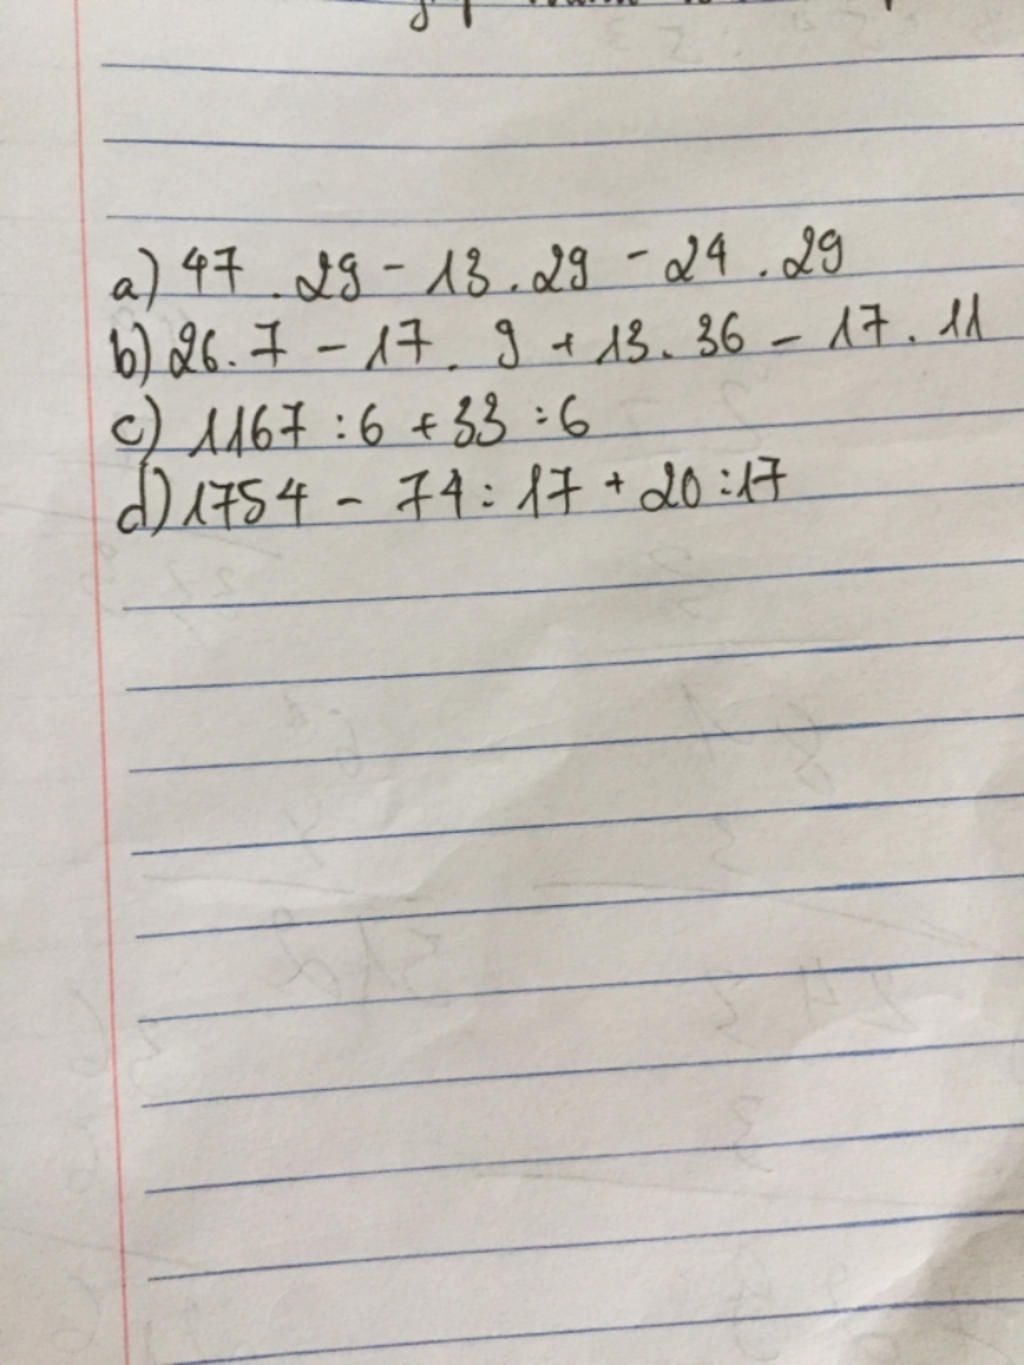 a) 47 . 29 - 13 . 29 - 24 . 29
b) 26 . 7 - 17 . 9 + 13 . 36 - 17 . 11
c) 1167 : 6 + 33 : 6
d) 1754 - 74 : 17 + 20 : 17